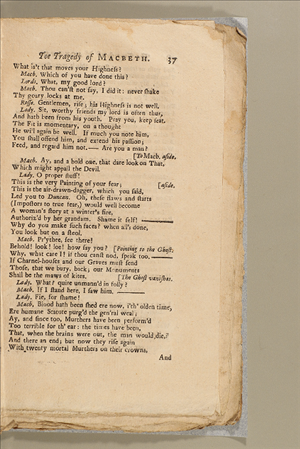 The Tragedy of MACBETH. 37
What is't that moves your Highness?
Macb. Which of you have done this?
Lords. What, my good lord?
Macb. Thou can'st not say, I did it: never shake
Thy goary locks at me,
Rosse. Gentlemen, rise; his Highness is not well.
Lady. Sit, worthy friends my lord is often thus,
And hath been from his youth. Pray you, keep seat.
The Fit is momentary, on a thought
He will again be well. If much you note him,
You shall offend him, and extend his passion;
Feed, and regard him not.— Are you a man?
[To Macb. aside.
Macb. Ay, and a bold one, that dare look on That,
Which might appall the Devil.
Lady. O proper stuff!
This is the very Painting of your fear; [aside.
This is the air-drawn-dagger, which you said,
Led you to Duncan. Oh, these flaws and starts
(Impostors to true fear,) would well become
A woman's story at a winter's fire,
Authoriz'd by her grandam. Shame it self!
Why do you make such faces? when all's done,
You look but on a stool.
Macb. Pr'ythee, see there!
Behold! look! loe! how say you? [Pointing to the Ghost.
Why, what care I? if thou canst nod, speak too.
If Charnel-houses and our Graves must send
Those, that we bury, back; our Monuments
Shall be the maws of kites. [The Ghost vanishes.
Lady. What? quite unmann'd in folly?
Macb. If I stand here, I saw him.
Lady. Fie, for shame!
Macb. Blood hath been shed ere now, i'th' olden time,
Ere humane Statute purg'd the gen'ral weal;
Ay, and since too, Murthers have been perform'd
Too terrible for th' ear: the times have been,
That, when the brains were out, the man would die,
And there an end; but now they rise again
With twenty mortal Murthers on their crowns,
And